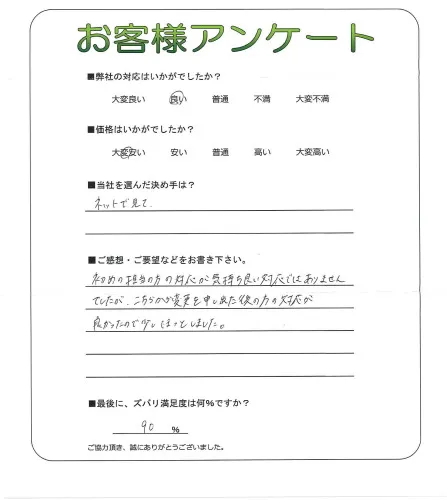 お客様アンケート
■弊社の対応はいかがでしたか？
大変良い 良い 普通 不満 大変不満
■価格はいかがでしたか？
大変安い 安い 普通 高い 大変高い
■当社を選んだ決め手は？
ネットで見て、
■ご感想・ご要望などをお書き下さい。
初めの担当の方の対応が気持ち良い対応ではありません
でしたが、こちらが変更を申し出た後の方の対応が
良かったので少しほっとしました。
■最後に、ズバリ満足度は何％ですか？
90 %
ご協力頂き、誠にありがとうございました。